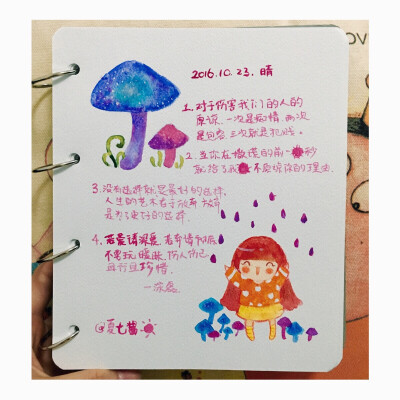 2016.10.23. 晴
1. 对于伤害我们的人的
原谅，一次是痴情，两次
是包容，三次就是犯贱。
2. 当你在撒谎的前一秒
就给了我不原谅你的理由.
3. 没有选择就是最好的选择.
人生的艺术在于放弃
最为了更好的选择.
4. 若爱请深爱，若弃请彻底
不要玩暧昧，伤人伤己
且行且珍惜.
@夏七酱
OV